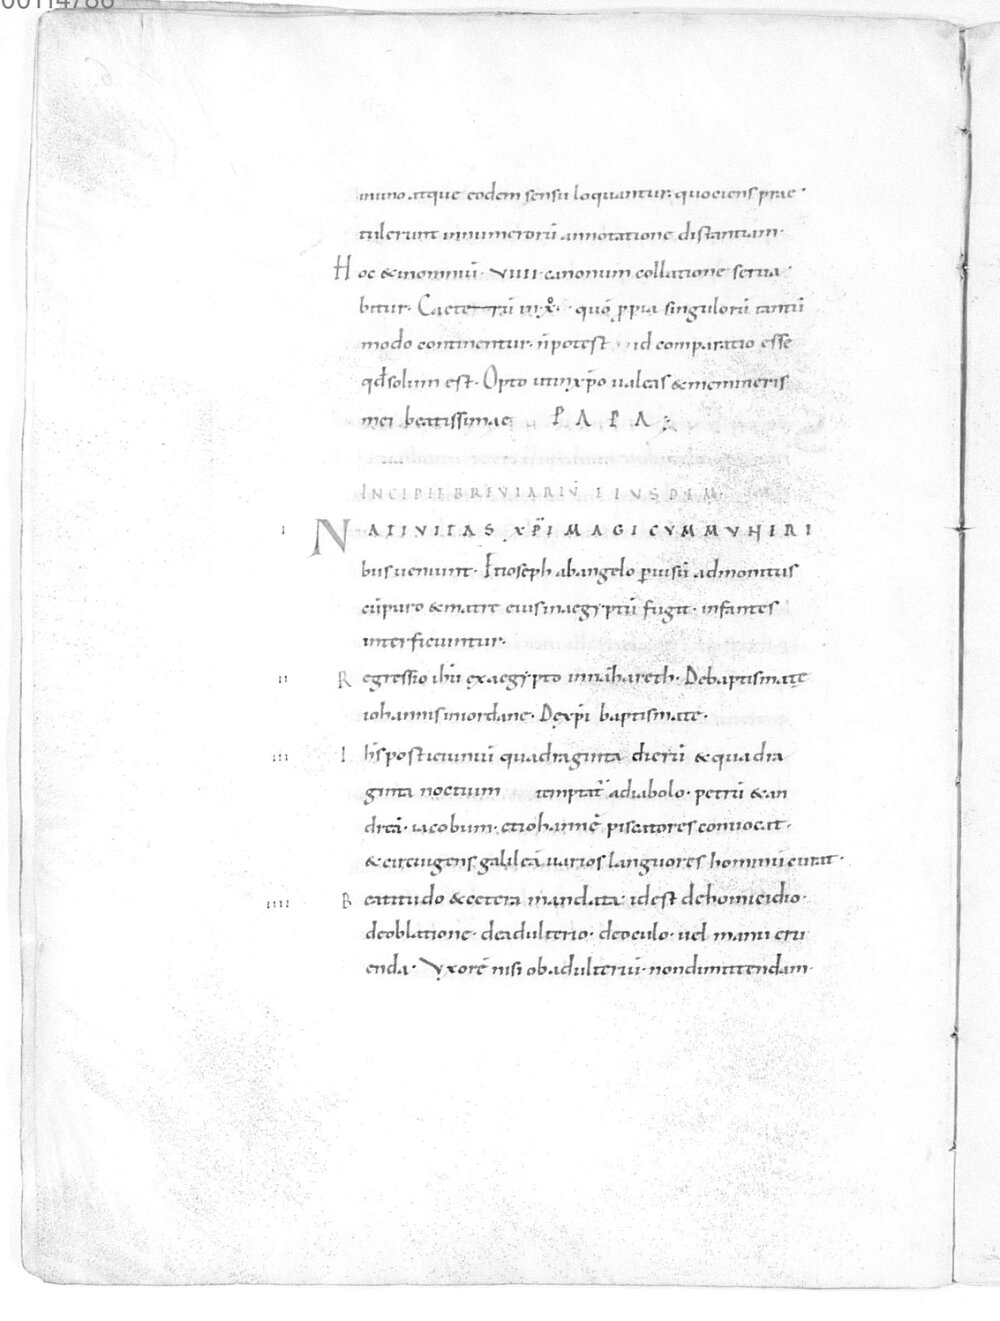 00114786
muno atque eodem sensu loquantur. quociens prae
tulerunt innumerorũ annotatione distantiam·
Hoc & in ominiũ· VIIII· canonum collatione serua
bitur· Caeterũ in x̊· quõ ppia singulorũ tantũ
modo continentur· ñ potest id comparatio esse
qđ solum est· Opto ut in xp̃o ualeas & memineris
mei beatissimae PAPA;
INCIPIT BREVIARIŨ EIUSDEM·
I NATIVITAS XP̃I MAGI CVM MVNERI
bus ueniunt· Et ioseph ab angelo p uisũ admonitus
cũ puero & matre eius in aegyptũ fugit· infantes
interficiuntur·
II Regressio ihũ ex aegypto in nazhareth· De baptismate
iohannis in iordane· De xp̃i baptismate·
III Ihs̃ post ieiuniũ quadraginta dierũ & quadra
ginta noctium temptat̃ a diabolo· petrũ & an
dreã· iacobum· et iohannẽ piscatores conuocat·
& circuigens galileã uarios languores hominũ curat·
IIII Beatitudo & cetera mandata· id est de homicidio·
de oblatione· de adulterio· de oculo· uel manu eru
enda· Vxorẽ nisi ob adulteriũ· non dimittendam·